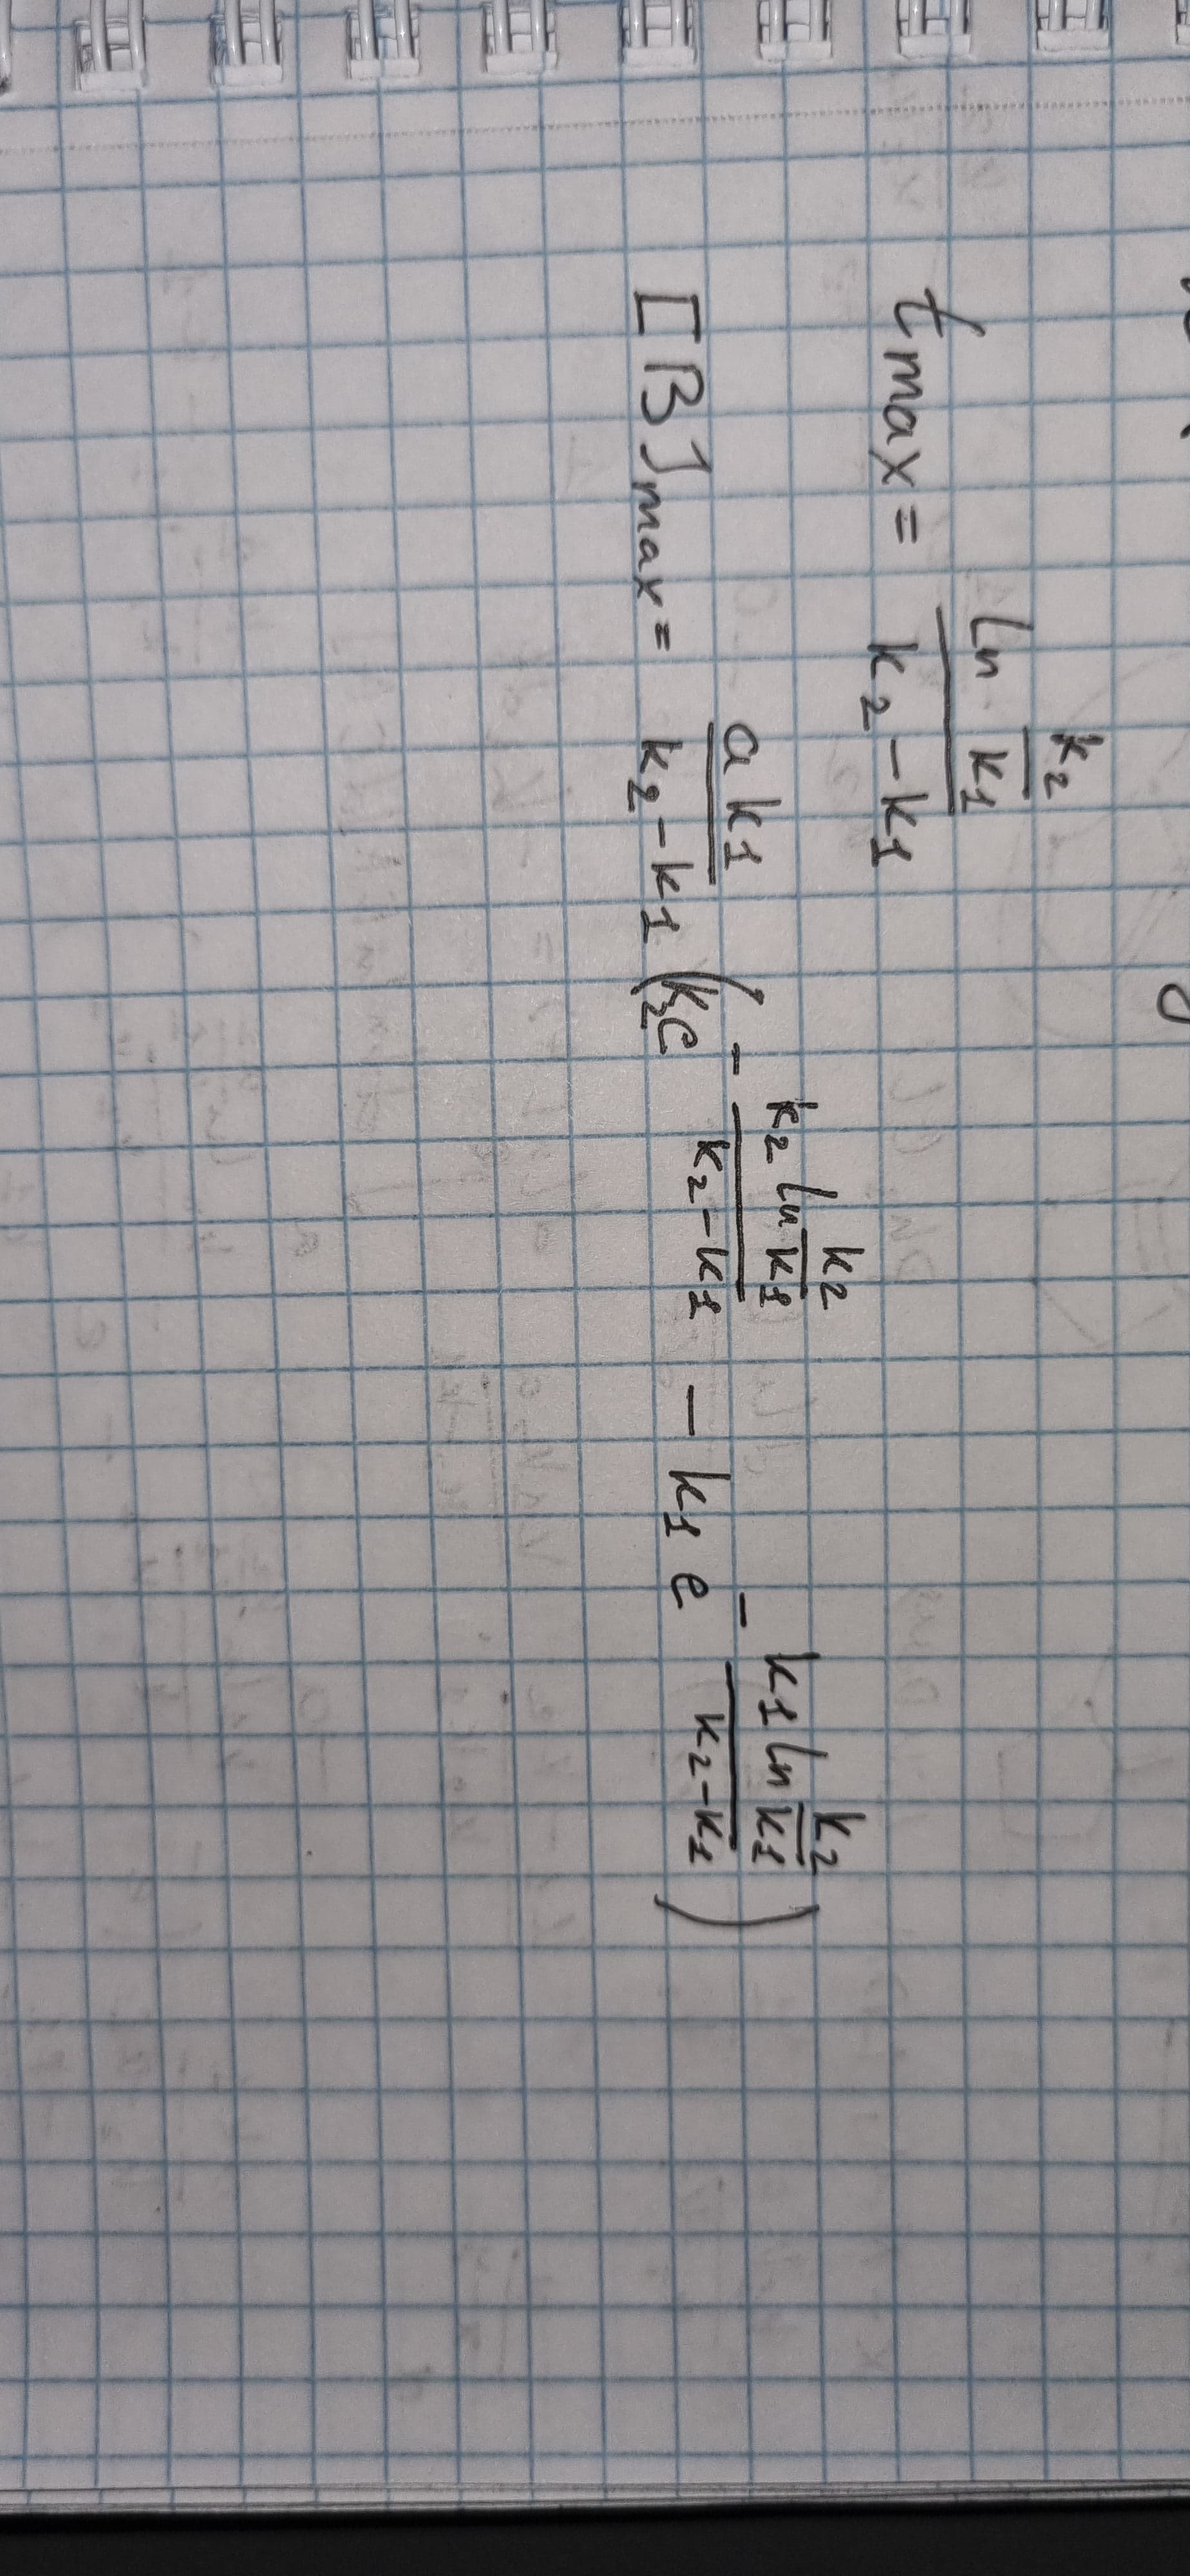 t max = (ln k2/k1)/(k2 - k1)
[B]max = (a k1)/(k2 - k1) (k2 e^(-(k2 ln k2/k1)/(k2 - k1)) - k1 e^(-(k1 ln k2/k1)/(k2 - k1)))